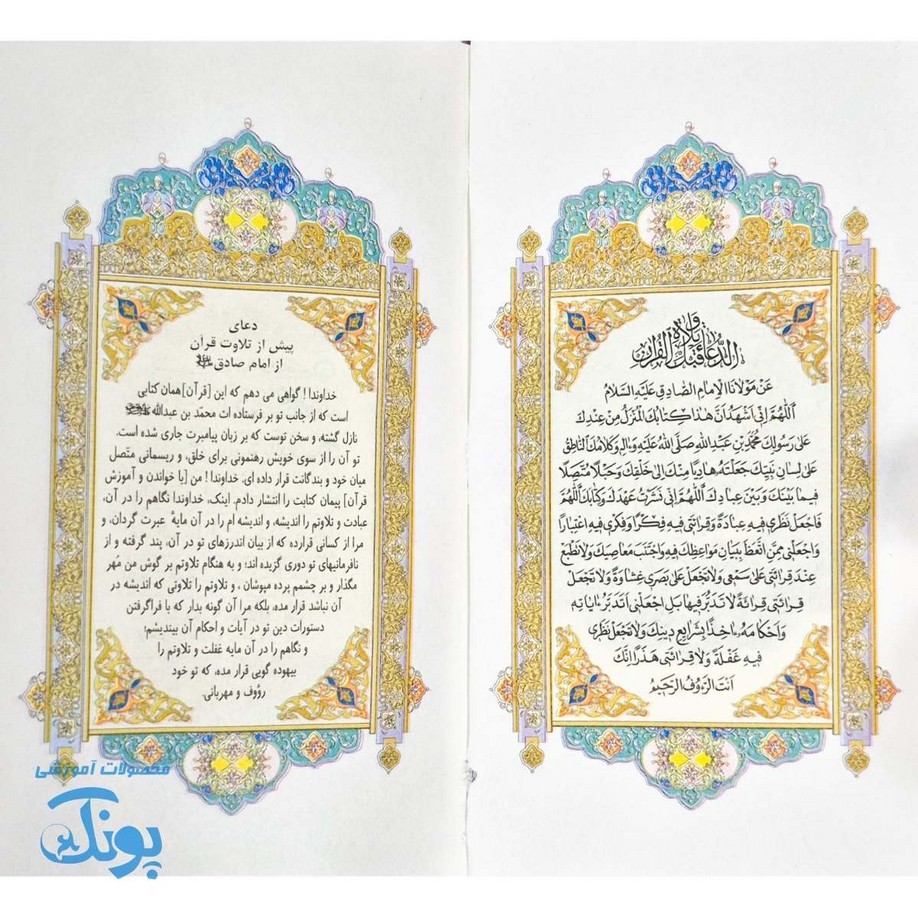 الدُّعاءُ قَبْلَ تِلاوَةِ الْقُرْانِ
عَنْ مَوْلانَا الْاِمامِ الصّادِقِ عَلَيْهِ السَّلامُ
اَللّٰهُمَّ اِنّى اَشْهَدُ اَنَّ هٰذا كِتابُكَ الْمُنْزَلُ مِنْ عِنْدِكَ
عَلى رَسُولِكَ مُحَمَّدِ بْنِ عَبْدِ اللهِ صَلَّى اللهُ عَلَيْهِ وَالِهِ وَكَلامُكَ النّاطِقُ
عَلى لِسانِ نَبِيِّكَ جَعَلْتَهُ هادِيًا مِنْكَ اِلى خَلْقِكَ وَحَبْلًا مُتَّصِلًا
فيما بَيْنَكَ وَبَيْنَ عِبادِكَ اَللّٰهُمَّ اِنّى نَشَرْتُ عَهْدَكَ وَكِتابَكَ اَللّٰهُمَّ
فَاجْعَلْ نَظَرى فيهِ عِبادَةً وَقِرائَتى فيهِ فِكْرًا وَفِكْرى فيهِ اعْتِبارًا
وَاجْعَلْنى مِمَّنِ اتَّعَظَ بِبَيانِ مَواعِظِكَ فيهِ وَاجْتَنَبَ مَعاصِيَكَ وَلا تَطْبَعْ
عِنْدَ قِرائَتى عَلى سَمْعى وَلا تَجْعَلْ عَلى بَصَرى غِشاوَةً وَلا تَجْعَلْ
قِرائَتى قِرائَةً لا تَدَبُّرَ فيها بَلِ اجْعَلْنى اَتَدَبَّرُ اياتِهِ
وَاَحْكامَهُ اخِذًا بِشَرايِعِ دينِكَ وَلا تَجْعَلْ نَظَرى
فيهِ غَفْلَةً وَلا قِرائَتى هَذَرًا اِنَّكَ
اَنْتَ الرَّؤُوفُ الرَّحيمُ
دعای
پیش از تلاوت قرآن
از امام صادق
خداوندا ! گواهی می دهم که این [قرآن] همان کتابی
است که از جانب تو بر فرستاده ات محمّد بن عبدالله
نازل گشته، و سخن توست که بر زبان پیامبرت جاری شده است.
تو آن را از سوی خویش رهنمونی برای خلق، و ریسمانی متّصل
میان خود و بندگانت قرار داده ای. خداوندا ! من [با خواندن و آموزش
قرآن] پیمان کتابت را انتشار دادم. اینک، خداوندا نگاهم را در آن،
عبادت و تلاوتم را اندیشه، و اندیشه ام را در آن مایهٔ عبرت گردان، و
مرا از کسانی قرارده که از بیان اندرزهای تو در آن، پند گرفته و از
نافرمانیهای تو دوری گزیده اند؛ و به هنگام تلاوتم بر گوش من مُهر
مگذار و بر چشمم پرده مپوشان ، و تلاوتم را تلاوتی که اندیشه در
آن نباشد قرار مده، بلکه مرا آن گونه بدار که با فراگرفتن
دستورات دین تو در آیات و احکام آن بیندیشم؛
و نگاهم را در آن مایه غفلت و تلاوتم را
بیهوده گویی قرار مده، که تو خود
رؤوف و مهربانی.
محصولات آموزشی
پونک